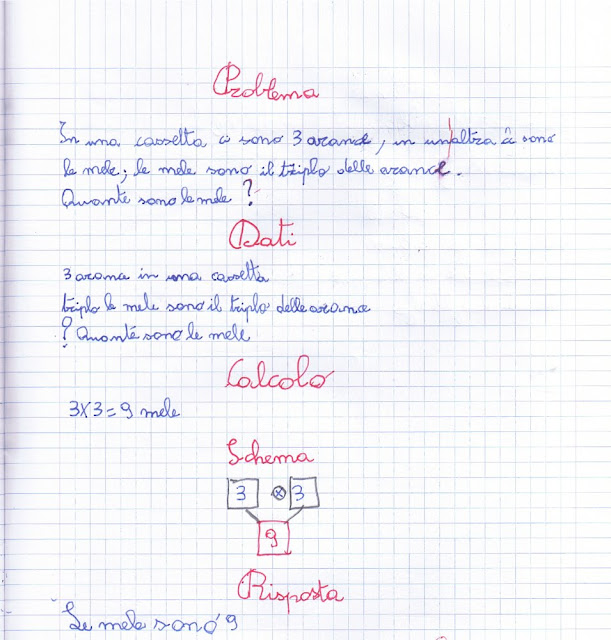 Problema
In una cassetta ci sono 3 arance, in un'altra ci sono
le mele; le mele sono il triplo delle arance.
Quante sono le mele?
Dati
3 arance in una cassetta
triplo le mele sono il triplo delle arance
? Quante sono le mele
Calcolo
3X3=9 mele
Schema
3 x 3
9
Risposta
Le mele sono 9